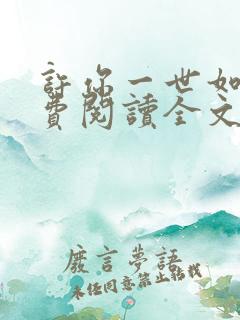 許你一世如
費閱讀全文
廢言夢語
未經同意禁止轉載